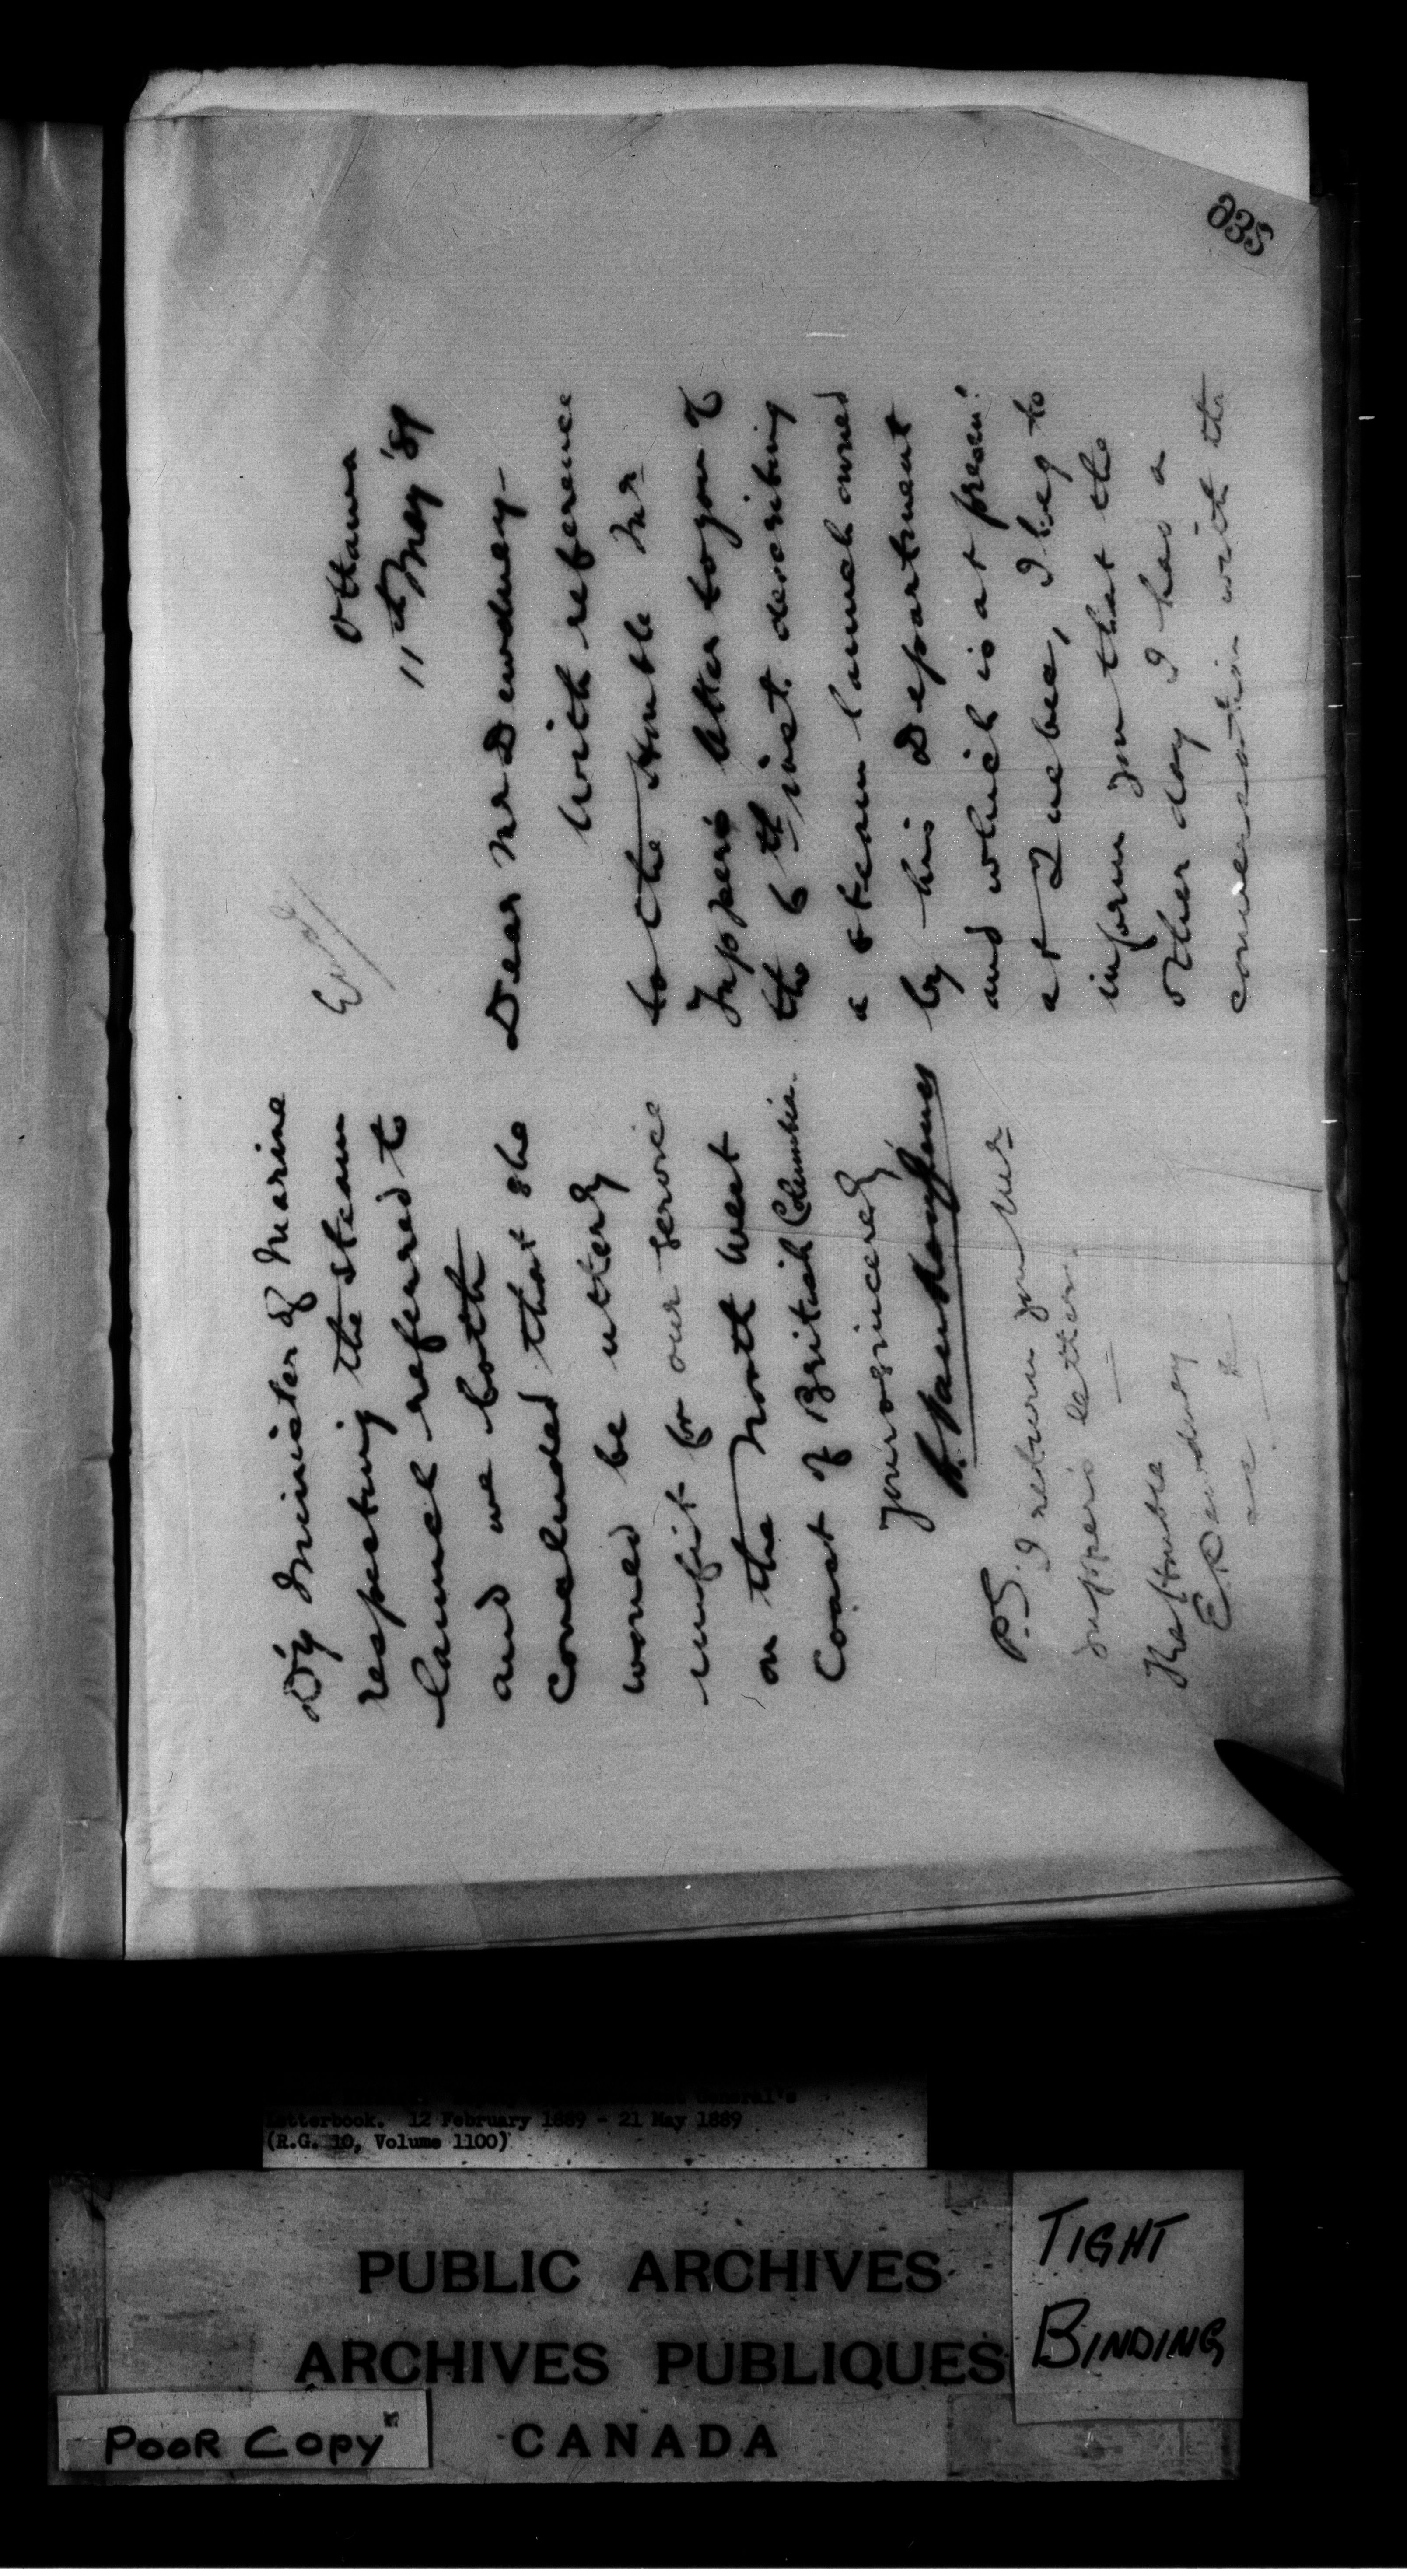 935
Encl
Ottawa
11th May '89
Dear Mr Dewdney
With reference
to the Honble Mr
Tupper's letter to you of
the 6th inst. describing
a steam launch owned
by his Department
and which is at present
at Quebec, I beg to
inform you that the
other day I had a
conversation with the
D'y Minister of Marine
respecting the steam
launch referred to
and we both
concluded that she
would be utterly
unfit for our service
on the North West
Coast of British Columbia.
Yours sincerely
L. Vankoughnet
P.S. I return you Mr
Tupper's letter.
The Honble
E. Dewdney
&c &c
Letterbook. 12 February 1889 - 21 May 1889
(R.G. 10, Volume 1100)
PUBLIC ARCHIVES
ARCHIVES PUBLIQUES
CANADA
TIGHT
BINDING
POOR COPY